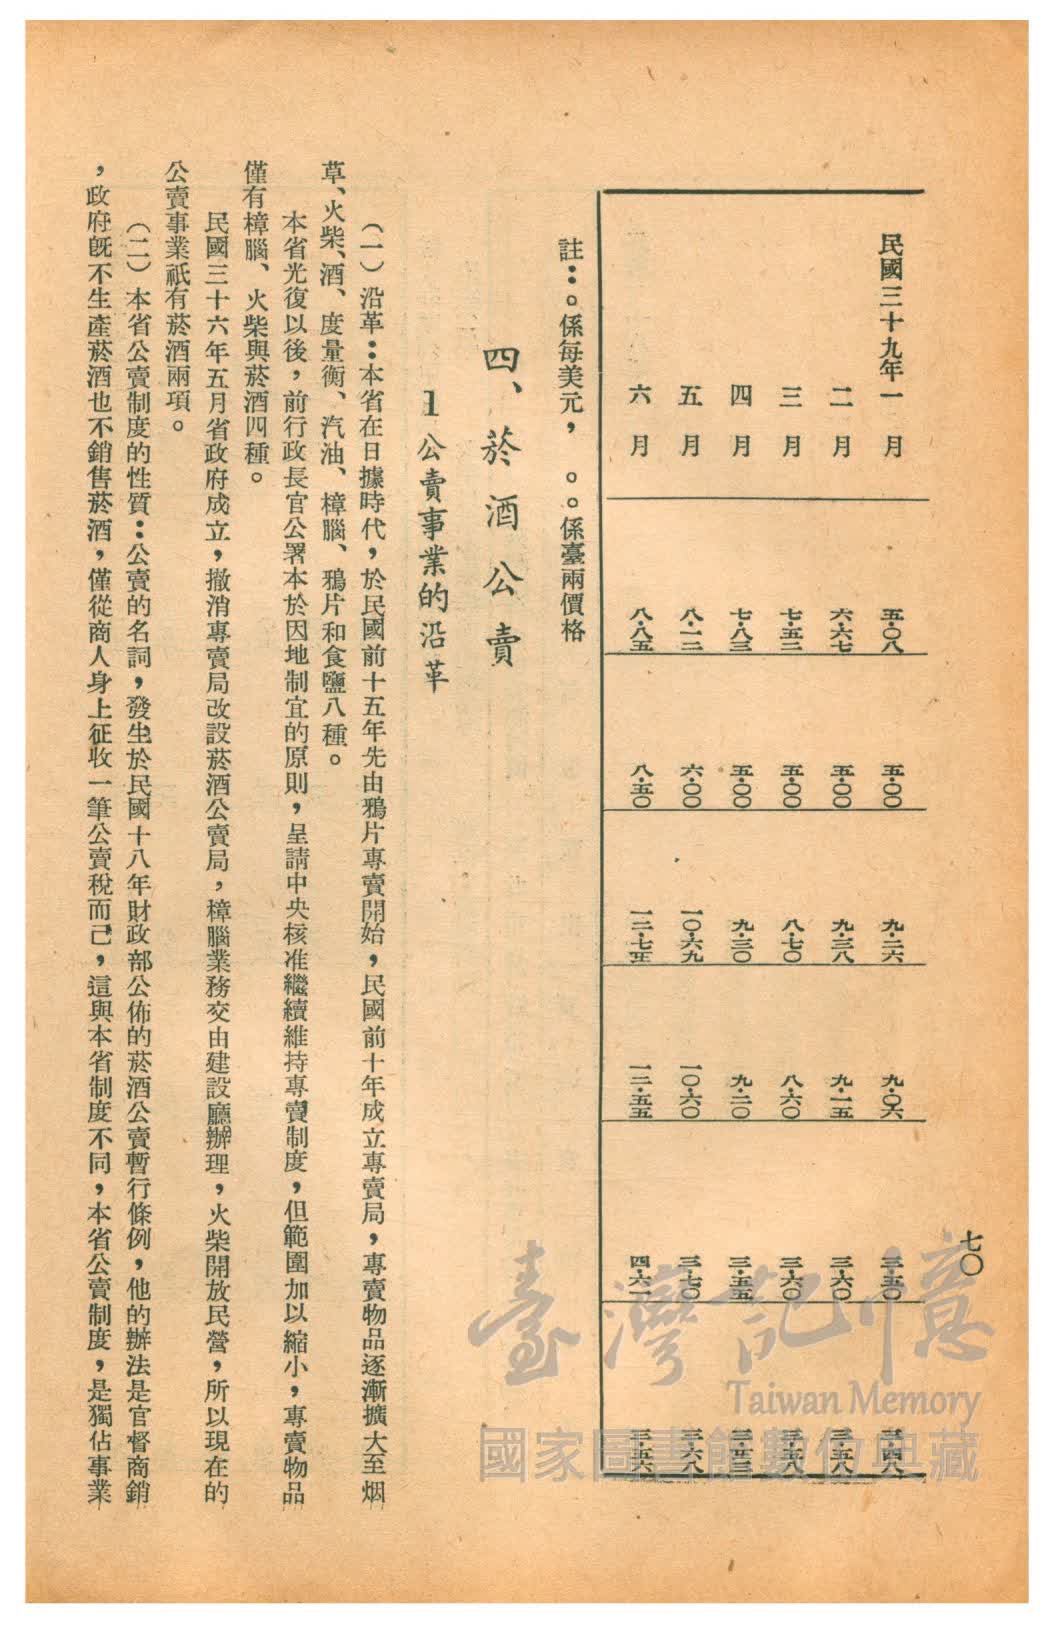 七〇
民國三十九年一月 五·〇八 五·〇〇 九·二六 九·〇六 三·五〇 三·四八
二月 六·六七 五·〇〇 九·三八 九·一五 三·六〇 三·五八
三月 七·五二 五·〇〇 八·七〇 八·六〇 三·六〇 三·五八
四月 七·八三 五·〇〇 九·三〇 九·二〇 三·五五
五月 八·一二 六·〇〇 一〇·六九 一〇·六〇 三·七〇 三·六八
六月 八·八五 八·五〇 一二·七五 一二·五五 四·六一
註：。係每美元，。。係臺兩價格
四、菸酒公賣
1 公賣事業的沿革
（一）沿革：本省在日據時代，於民國前十五年先由鴉片專賣開始，民國前十年成立專賣局，專賣物品逐漸擴大至烟
草、火柴、酒、度量衡、汽油、樟腦、鴉片和食鹽八種。
本省光復以後，前行政長官公署本於因地制宜的原則，呈請中央核准繼續維持專賣制度，但範圍加以縮小，專賣物品
僅有樟腦、火柴與菸酒四種。
民國三十六年五月省政府成立，撤消專賣局改設菸酒公賣局，樟腦業務交由建設廳辦理，火柴開放民營，所以現在的
公賣事業祇有菸酒兩項。
（二）本省公賣制度的性質：公賣的名詞，發生於民國十八年財政部公佈的菸酒公賣暫行條例，他的辦法是官督商銷
，政府既不生產菸酒也不銷售菸酒，僅從商人身上征收一筆公賣稅而己，這與本省制度不同，本省公賣制度，是獨佔事業
臺灣記憶
Taiwan Memory
國家圖書館數位典藏